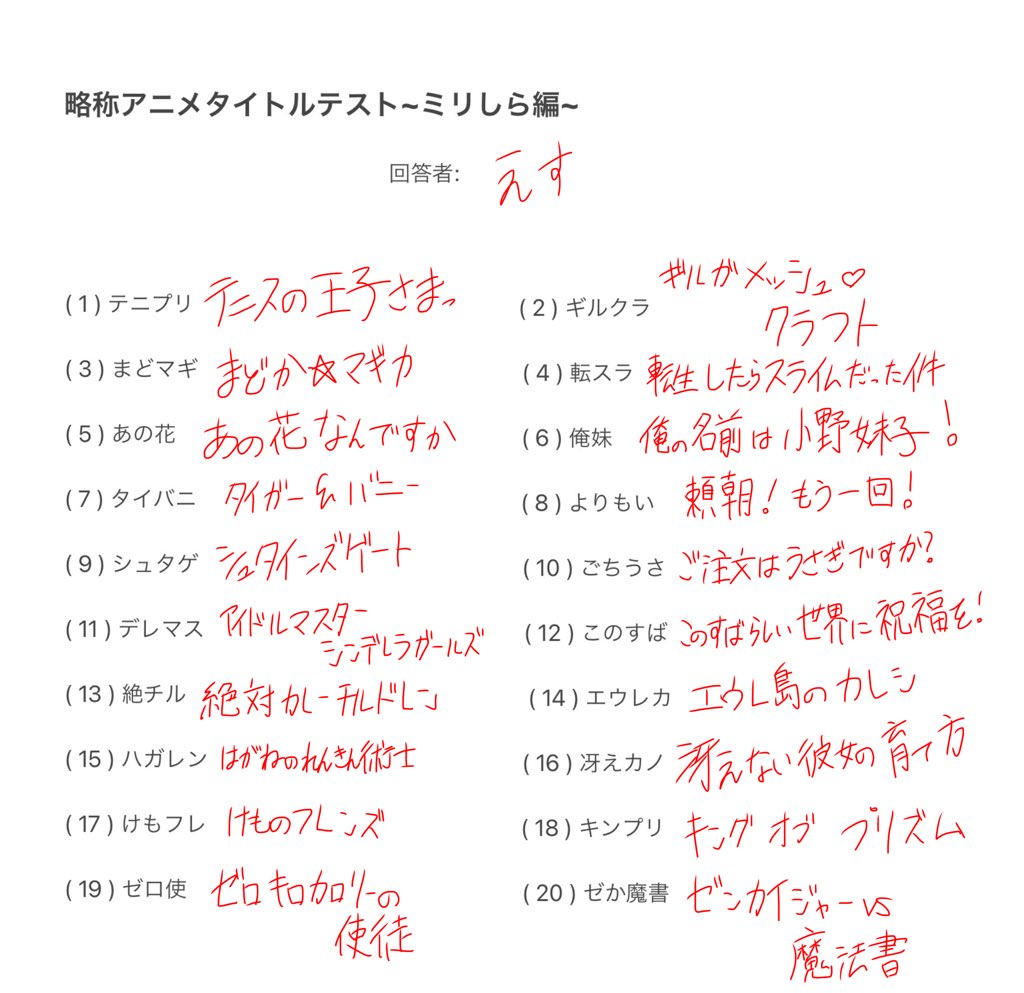 略称アニメタイトルテスト~ミリしら編~
回答者: えす
(1) テニプリ テニスの王子さまっ
(2) ギルクラ ギルガメッシュ♡
クラフト
(3) まどマギ まどか☆マギカ
(4) 転スラ 転生したらスライムだった件
(5) あの花 あの花なんですか
(6) 俺妹 俺の名前は小野妹子!
(7) タイバニ タイガー&バニー
(8) よりもい 頼朝!もう一回!
(9) シュタゲ シュタインズゲート
(10) ごちうさ ご注文はうさぎですか?
(11) デレマス アイドルマスター
シンデレラガールズ
(12) このすば このすばらしい世界に祝福を!
(13) 絶チル 絶対カレーチルドレン
(14) エウレカ エウレ島のカレシ
(15) ハガレン はがねのれんきん術士
(16) 冴えカノ 冴えない彼女の育て方
(17) けもフレ けものフレンズ
(18) キンプリ キング オブ プリズム
(19) ゼロ使 ゼロキロカロリーの
使徒
(20) ゼか魔書 ゼンカイジャーvs
魔法書